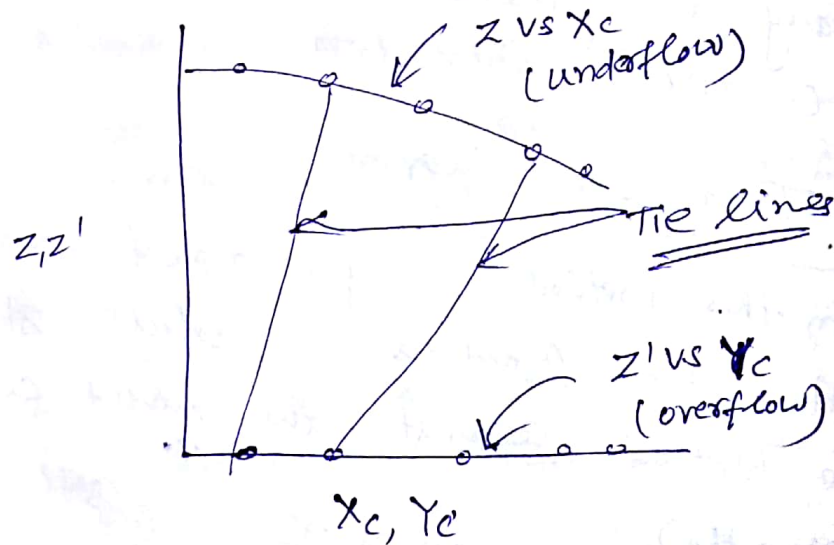 Z vs Xc
(underflow)
Z, Z'
Tie lines.
Z' vs Yc
(overflow)
Xc, Yc